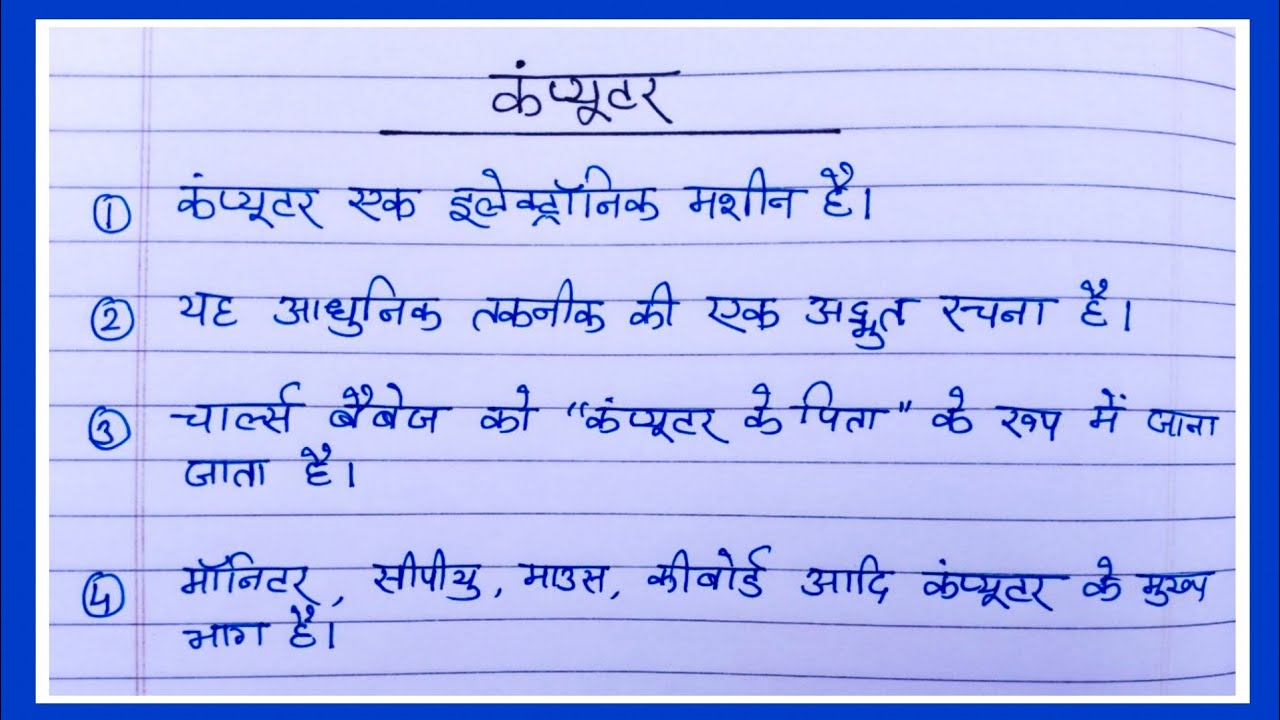 कंप्यूटर
① कंप्यूटर एक इलेक्ट्रॉनिक मशीन है।
② यह आधुनिक तकनीक की एक अद्भुत रचना है।
③ चार्ल्स बैबेज को "कंप्यूटर के पिता" के रूप में जाना
जाता है।
④ मॉनिटर, सीपीयु, माउस, कीबोर्ड आदि कंप्यूटर के मुख्य
भाग है।